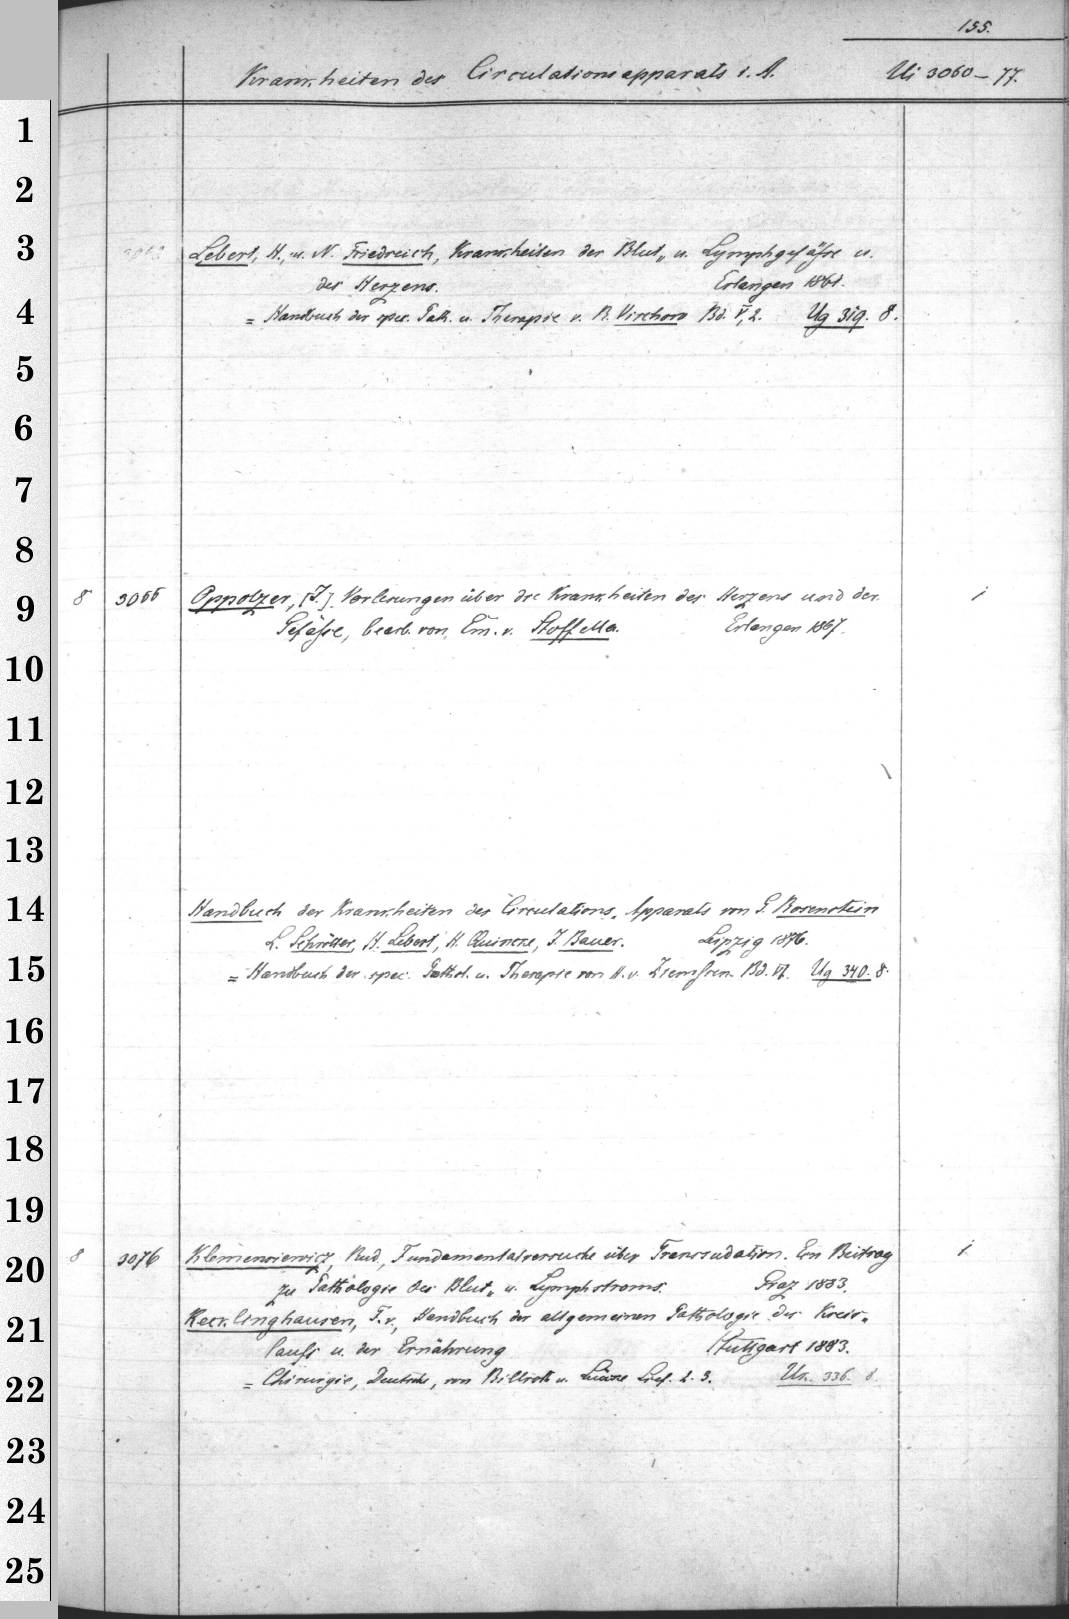 155.
Krankheiten des Circulationsapparats i. A. Ui 3060-77.
1
2
3
Lebert, H., u. N. Friedreich, Krankheiten der Blut- u. Lymphgefäße u.
des Herzens. Erlangen 1861.
4
= Handbuch der spec. Path. u. Therapie v. R. Virchow Bd. V, 2. Ug 319. 8.
5
6
7
8
9
8 3066 Oppolzer, [J.] Vorlesungen über die Krankheiten des Herzens und der i
Gefäße, bearb. von Em. v. Stoffella. Erlangen 1867.
10
11
12
13
14
Handbuch der Krankheiten des Circulations-Apparats von S. Rosenstein
L. Schrötter, H. Lebert, H. Quincke, J. Bauer. Leipzig 1876.
15
= Handbuch der spec. Pathol. u. Therapie von H. v. Ziemssen. Bd. VI. Ug 340. 8.
16
17
18
19
20
8 3076 Klemensiewicz, Rud., Fundamentalversuche über Transsudation. Ein Beitrag i.
zu Pathologie des Blut- u. Lymphstroms. Graz 1883.
21
Recklinghausen, F. v., Handbuch der allgemeinen Pathologie des Kreis-
laufs u. der Ernährung Stuttgart 1883.
22
= Chirurgie, Deutsche, von Billroth u. Luecke Lief. 2. 3. Uk. 336. 8.
23
24
25